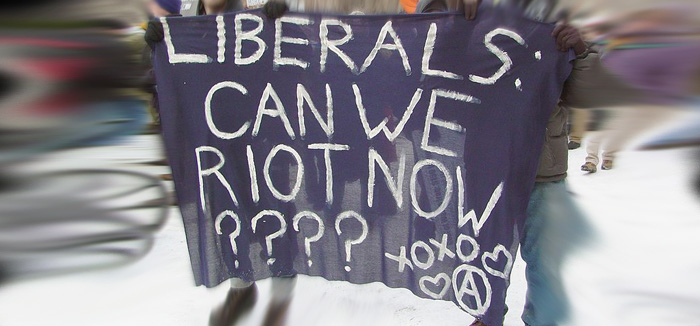 LIBERALS:
CAN WE
RIOT NOW
????
XOXO♡
♡Ⓐ